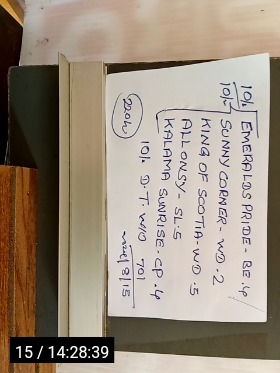 10/. EMERALDS PRIDE - BE.4
10/. SUNNY CORNER - WD.2
KING OF SCOTIA - WD.5
ALLONSY - SL.5
KALAMA SUNRISE - CP.4
10/. D.T. W/O TO1
220W
/8/15
15 / 14:28:39